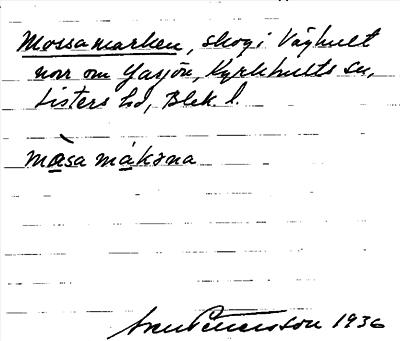 Mossamarken, skog i Våghult
norr om Gasjön, Kyrkhults sn,
Listers hd, Blek. l.
mɑ̀sa mákəna
Petersson 1936